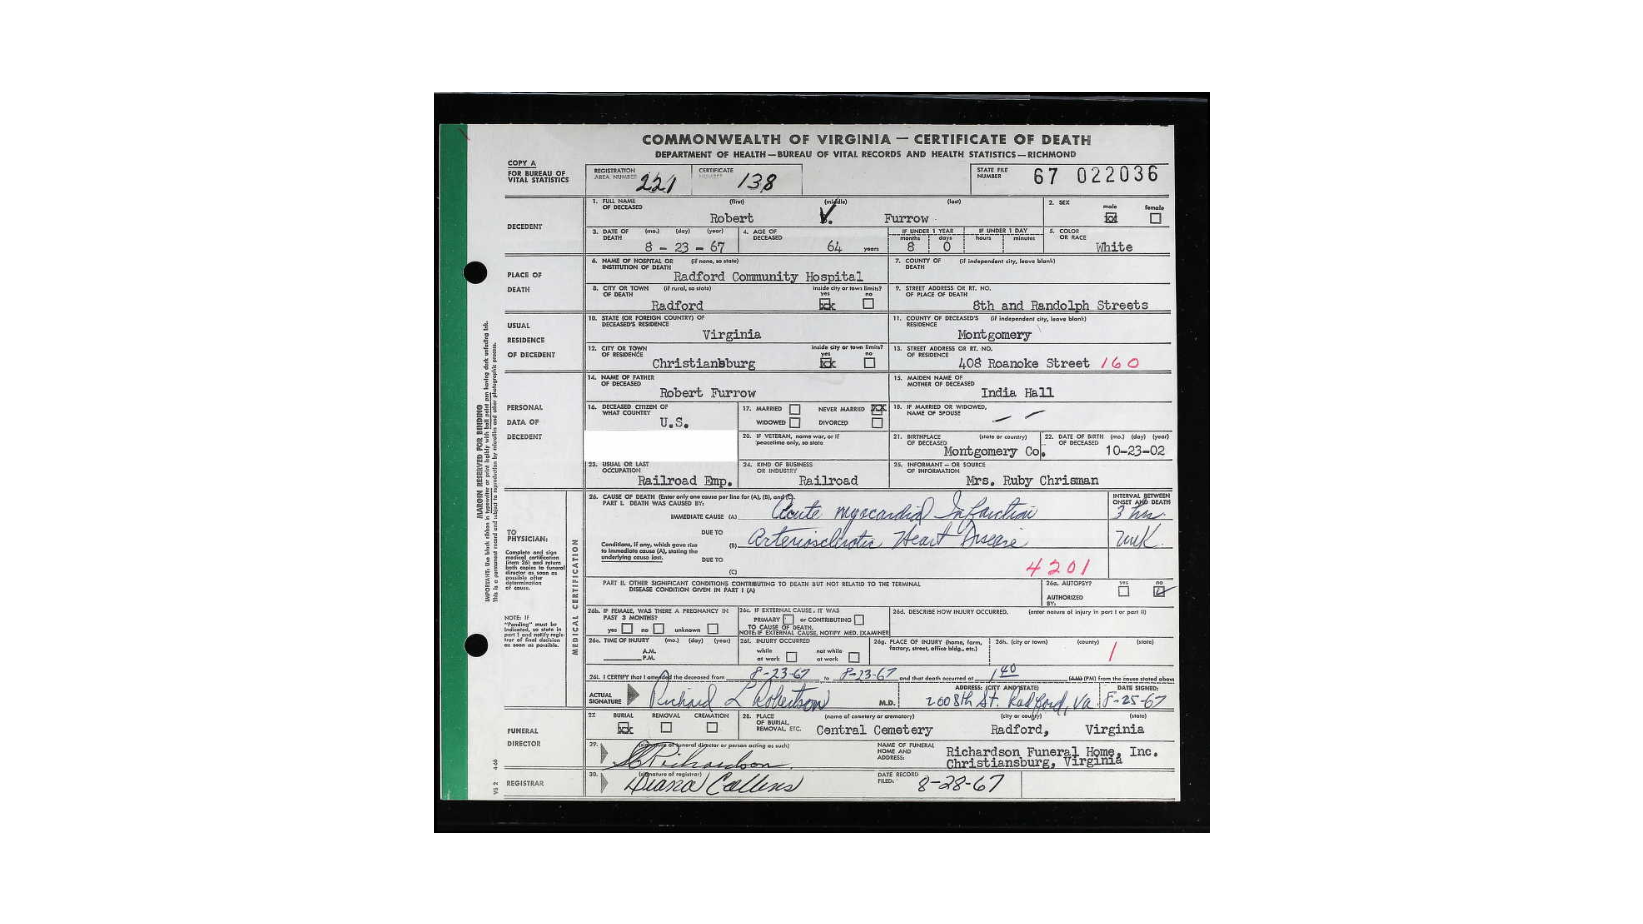 COMMONWEALTH OF VIRGINIA — CERTIFICATE OF DEATH
DEPARTMENT OF HEALTH—BUREAU OF VITAL RECORDS AND HEALTH STATISTICS—RICHMOND
COPY A
FOR BUREAU OF
VITAL STATISTICS
REGISTRATION
AREA NUMBER 221
CERTIFICATE
NUMBER 138
STATE FILE
NUMBER 67 022036
DECEDENT
1. FULL NAME
OF DECEASED
(first) (middle) (last)
Robert Furrow
2. SEX
male female
3. DATE OF
DEATH
(mo.) (day) (year)
8 - 23 - 67
4. AGE OF
DECEASED
64 years
IF UNDER 1 YEAR
months days
8 0
IF UNDER 1 DAY
hours minutes
5. COLOR
OR RACE
White
PLACE OF
DEATH
6. NAME OF HOSPITAL OR
INSTITUTION OF DEATH
(if none, so state)
Radford Community Hospital
7. COUNTY OF
DEATH
(if independent city, leave blank)
8. CITY OR TOWN
OF DEATH
(if rural, so state)
Radford
inside city or town limits?
yes no
9. STREET ADDRESS OR RT. NO.
OF PLACE OF DEATH
8th and Randolph Streets
USUAL
RESIDENCE
OF DECEDENT
10. STATE (OR FOREIGN COUNTRY) OF
DECEASED'S RESIDENCE
Virginia
11. COUNTY OF DECEASED'S
RESIDENCE
(if independent city, leave blank)
Montgomery
12. CITY OR TOWN
OF RESIDENCE
Christiansburg
inside city or town limits?
yes no
13. STREET ADDRESS OR RT. NO.
OF RESIDENCE
408 Roanoke Street 160
PERSONAL
DATA OF
DECEDENT
14. NAME OF FATHER
OF DECEASED
Robert Furrow
15. MAIDEN NAME OF
MOTHER OF DECEASED
India Hall
16. DECEASED CITIZEN OF
WHAT COUNTRY
U.S.
17. MARRIED NEVER MARRIED
WIDOWED DIVORCED
18. IF MARRIED OR WIDOWED,
NAME OF SPOUSE
20. IF VETERAN, name war, or if
peacetime only, so state
21. BIRTHPLACE
OF DECEASED
(state or country)
Montgomery Co.
22. DATE OF BIRTH
OF DECEASED
(mo.) (day) (year)
10-23-02
23. USUAL OR LAST
OCCUPATION
Railroad Emp.
24. KIND OF BUSINESS
OR INDUSTRY
Railroad
25. INFORMANT – OR SOURCE
OF INFORMATION
Mrs. Ruby Chrisman
MARGIN RESERVED FOR BINDING
MEDICAL CERTIFICATION
TO
PHYSICIAN:
Complete and sign
medical certification
(item 26) and return
both copies to funeral
director as soon as
possible after
determination
of cause.
NOTE: IF
"Pending" must be
indicated, so state in
part I and notify regis-
trar of final decision
as soon as possible.
26. CAUSE OF DEATH (Enter only one cause per line for (A), (B), and (C).
PART I. DEATH WAS CAUSED BY:
INTERVAL BETWEEN
ONSET AND DEATH
IMMEDIATE CAUSE (A) Acute myocardial Infarction 3 hrs
DUE TO
(B) Arteriosclerotic Heart Disease unk.
Conditions, if any, which gave rise
to immediate cause (A), stating the
underlying cause last.
DUE TO
(C)
4201
PART II. OTHER SIGNIFICANT CONDITIONS CONTRIBUTING TO DEATH BUT NOT RELATED TO THE TERMINAL
DISEASE CONDITION GIVEN IN PART I (A)
26a. AUTOPSY?
yes no
AUTHORIZED
BY:
26b. IF FEMALE, WAS THERE A PREGNANCY IN
PAST 3 MONTHS?
yes no unknown
26c. IF EXTERNAL CAUSE, IT WAS
PRIMARY or CONTRIBUTING
TO CAUSE OF DEATH.
NOTE: IF EXTERNAL CAUSE, NOTIFY MED. EXAMINER
26d. DESCRIBE HOW INJURY OCCURRED.
(enter nature of injury in part I or part II)
26e. TIME OF INJURY
(mo.) (day) (year)
A.M.
P.M.
26f. INJURY OCCURRED
while
at work
not while
at work
26g. PLACE OF INJURY (home, farm,
factory, street, office bldg., etc.)
26h. (city or town) (county) (state)
26i. I CERTIFY that I attended the deceased from 8-23-67 to 8-23-67 and that death occurred at 1 40 (PM) from the cause stated above
ACTUAL
SIGNATURE Richard L Robertson M.D.
ADDRESS: (CITY AND STATE)
200 8th St. Radford, Va.
DATE SIGNED:
8-25-67
FUNERAL
DIRECTOR
27. BURIAL REMOVAL CREMATION
28. PLACE
OF BURIAL,
REMOVAL, ETC.
(name of cemetery or crematory) (city or county) (state)
Central Cemetery Radford, Virginia
29.
(signature of funeral director or person acting as such)
Richardson
NAME OF FUNERAL
HOME AND
ADDRESS:
Richardson Funeral Home, Inc.
Christiansburg, Virginia
REGISTRAR
30.
(signature of registrar)
Diana Collins
DATE RECORD
FILED:
8-28-67
VS 2